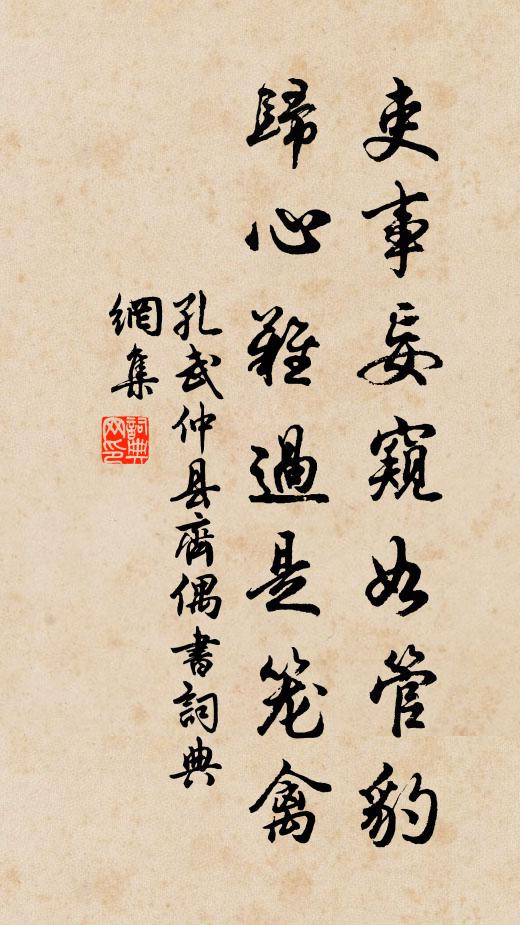 吏事妄窺如管豹
歸心難過是笼禽
孔武仲县齋偶書詞典
網集
詞典網印